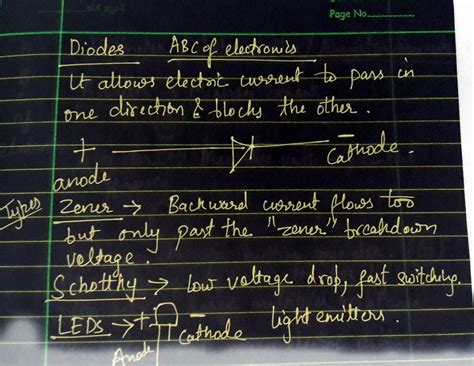 Page No.
Diodes ABC of electronics
It allows electric current to pass in
one direction & blocks the other.
+ −
anode Cathode.
Types
Zener → Backward current flows too
but only past the "zener" breakdown
voltage.
Schottky → low voltage drop, fast switching.
LEDs → + − light emitters.
Anode Cathode